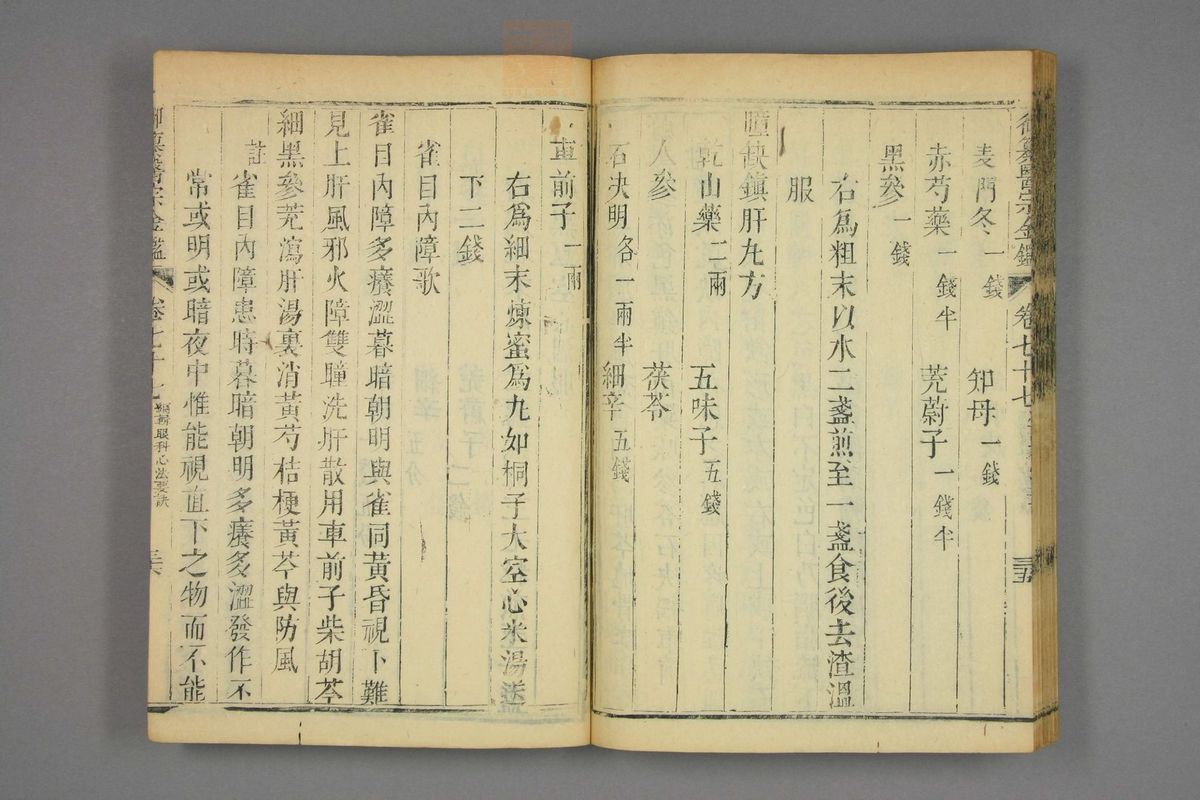 御纂醫宗金鑑 卷七十七 三五
麦門冬一錢 知母一錢
赤芍藥一錢半 茺蔚子一錢半
黑參一錢
右爲粗末以水二盞煎至一盞食後去渣溫
服
瞳缺鎮肝丸方
乾山藥二兩 五味子五錢
人參 茯苓
石决明各一兩半 細辛五錢
車前子一兩
右爲細末煉蜜爲丸如桐子大空心米湯送
下二錢
雀目內障歌
雀目內障多癢澀暮暗朝明與雀同黃昏視下難
見上肝風邪火障雙瞳洗肝散用車前子柴胡芩
細黑參茺瀉肝湯裏消黃芍桔梗黃芩與防風
註
雀目內障患時暮暗朝明多癢多澀發作不
常或明或暗夜中惟能視直下之物而不能
御纂醫宗金鑑 卷七十七 編輯眼科心法要訣 三六